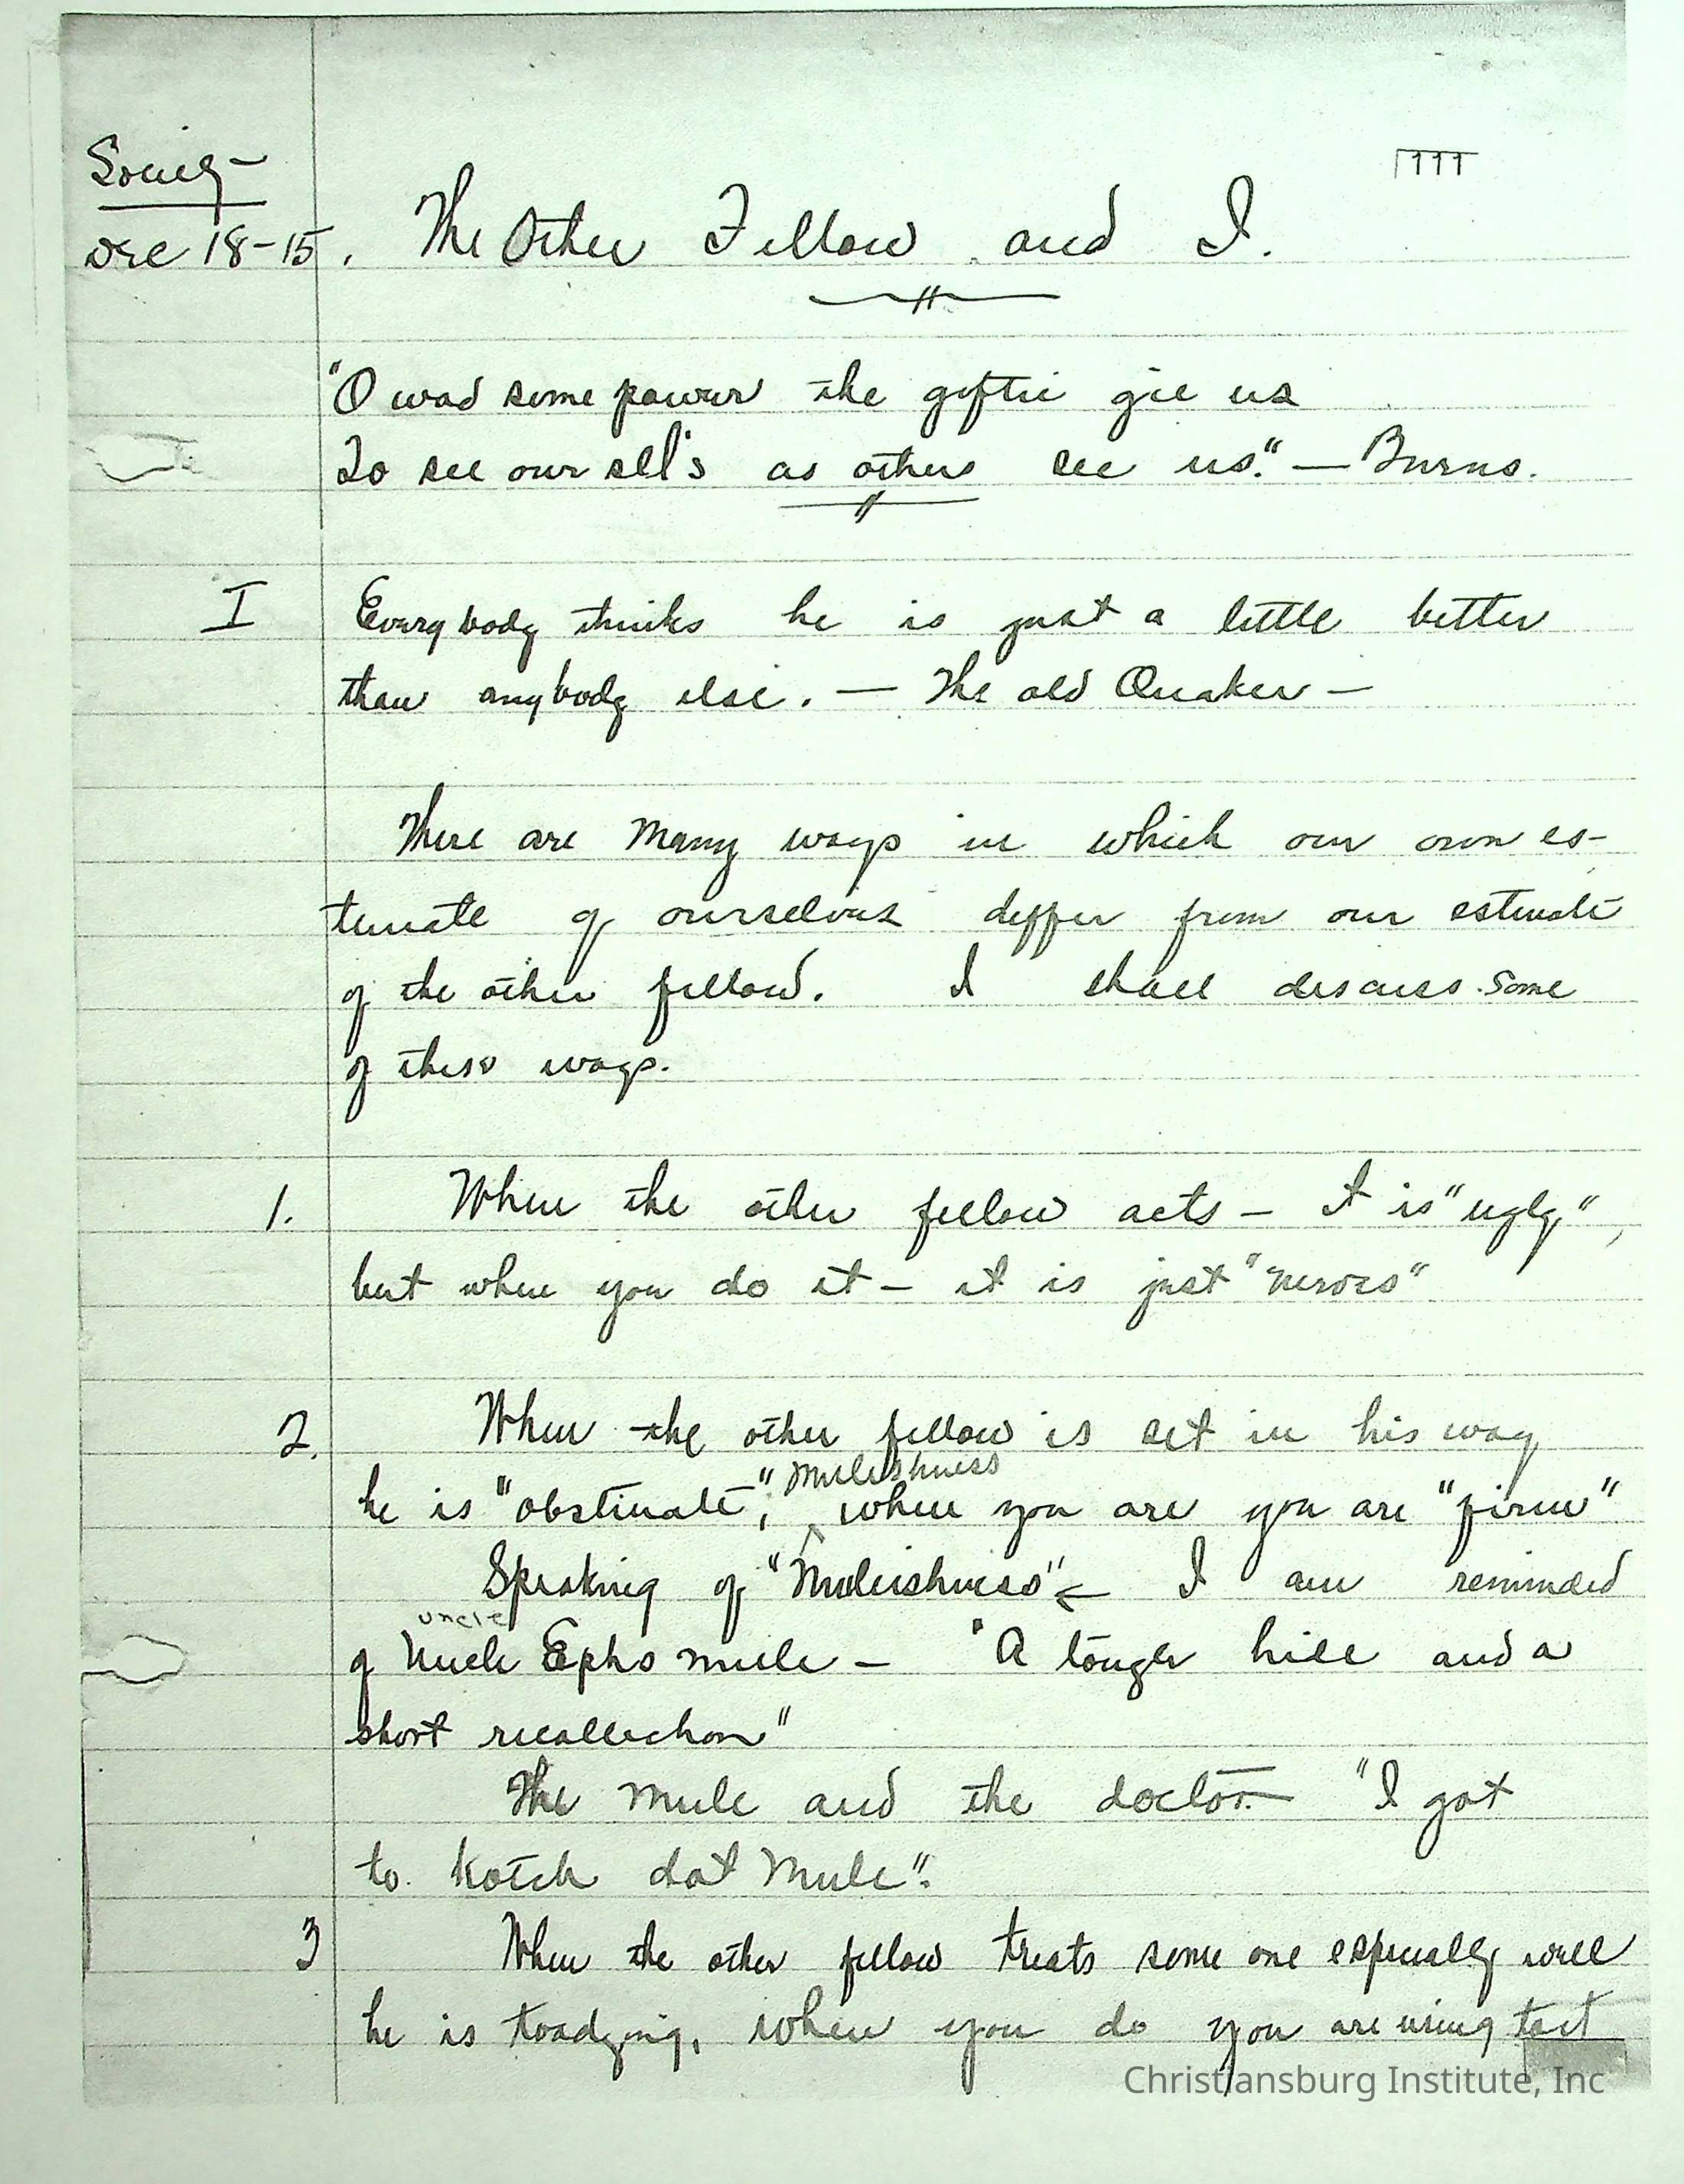 111
Dec 18-15. The Other Fellow and I.
"O wad some power the giftie gie us
To see oursel's as others see us." — Burns.
I Everybody thinks he is just a little better
than anybody else. — The old Quaker —
There are many ways in which our own es-
timate of ourselves differ from our estimate
of the other fellow. I shall discuss some
of these ways.
1. When the other fellow acts — it is "ugly",
but when you do it — it is just "nerves"
2. When the other fellow is set in his way
mulishness
he is "obstinate"; when you are you are "firm"
Speaking of "Mulishness" I am reminded
uncle
of Uncle Ephs mule — "A tough hide and a
short recollection"
The mule and the doctor — "I got
to kotch dat mule".
3 When the other fellow treats some one especially well
he is toadying, when you do you are using tact
Christiansburg Institute, Inc